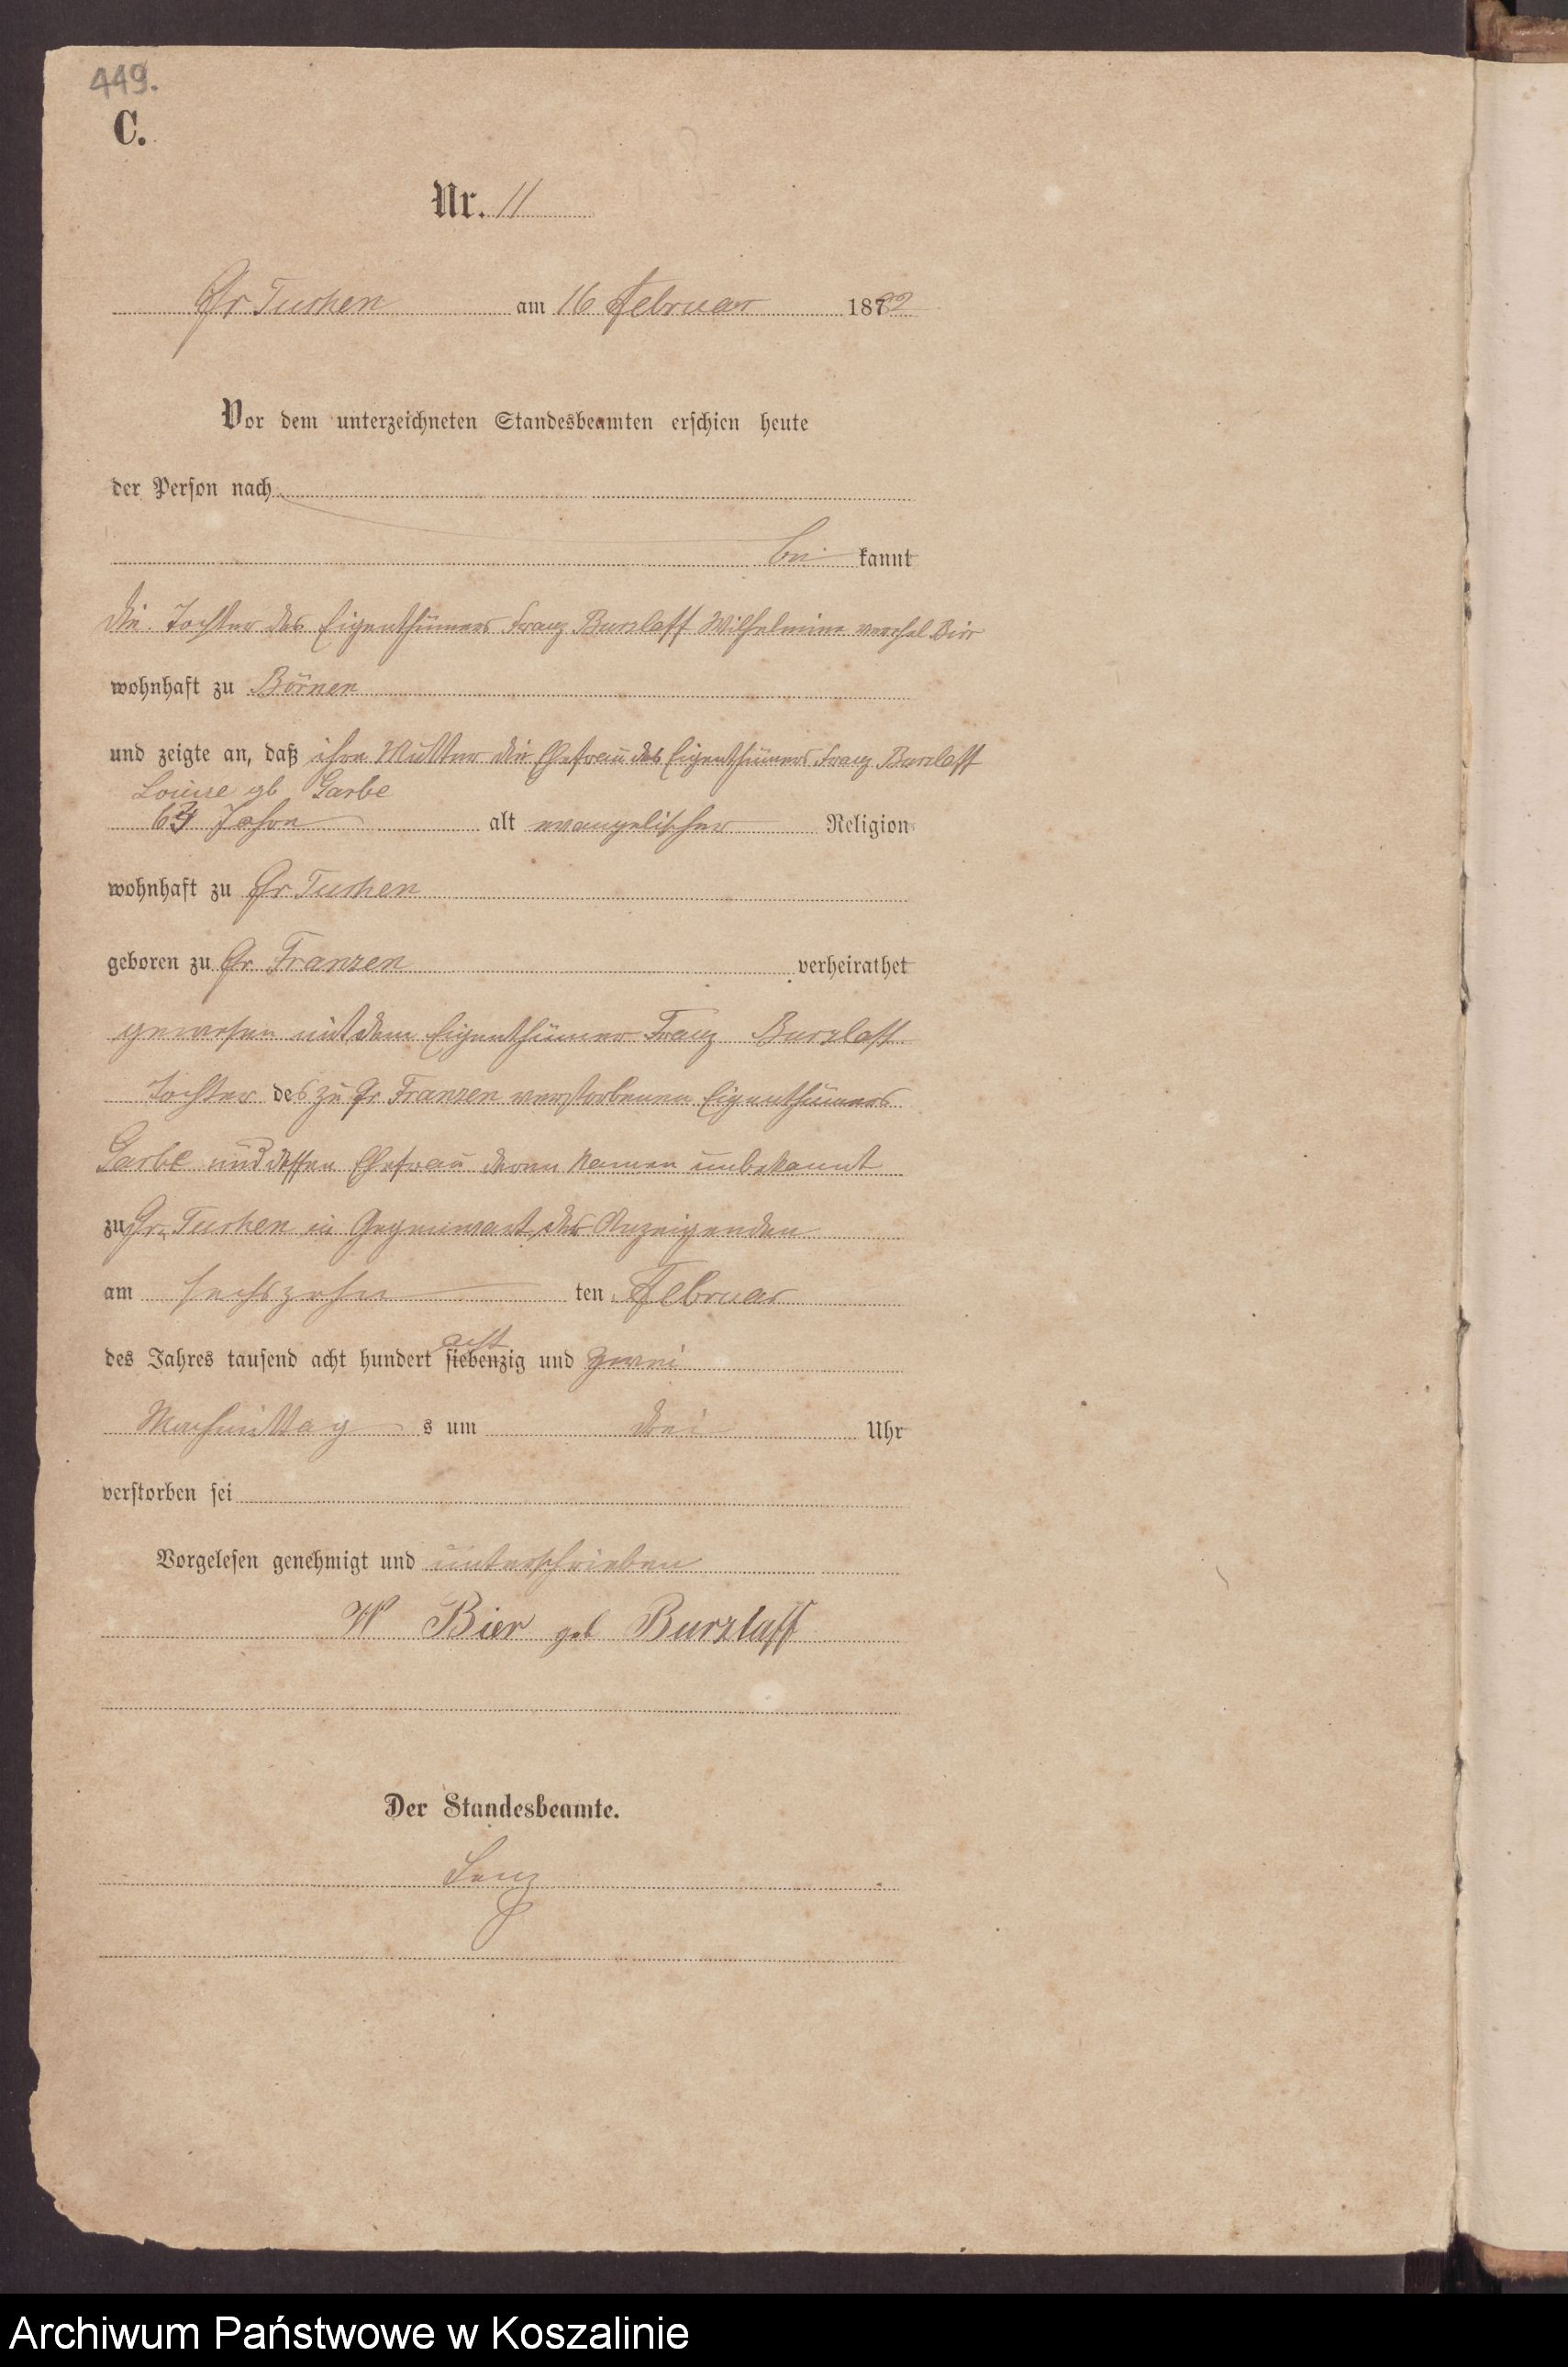 449.
C.
Nr. 11
Gr Tuchen am 16 Februar 1882
Vor dem unterzeichneten Standesbeamten erschien heute
der Person nach
be kannt
die Tochter des Eigenthümers Franz Burzlaff Wilhelmine Bier
wohnhaft zu Börnen
und zeigte an, daß ihre Mutter die Ehefrau des Eigenthümers Franz Burzlaff
Louise gb Garbe
Jahre alt evangelischer Religion
wohnhaft zu Gr Tuchen
geboren zu Gr Franzen verheirathet
gewesen mit dem Eigenthümer Franz Burzlaff
Tochter des zu Gr Franzen verstorbenen Eigenthümers
Garbe und dessen Ehefrau deren Namen unbekannt
zu Gr. Tuchen in Gegenwart der Anzeigenden
am sechszehn ten Februar
des Jahres tausend acht hundert siebenzig acht und zwei
Nachmittag s um drei Uhr
verstorben sei
Vorgelesen genehmigt und unterschrieben
W Bier geb Burzlaff
Der Standesbeamte.
Lenz
Archiwum Państwowe w Koszalinie